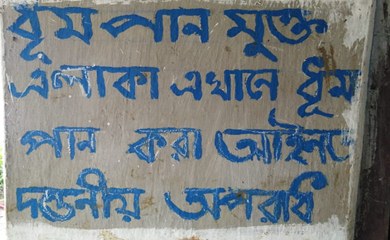 ধূমপান মুক্ত
এলাকা এখানে ধূম
পান করা আইনত
দন্ডনীয় অপরাধ